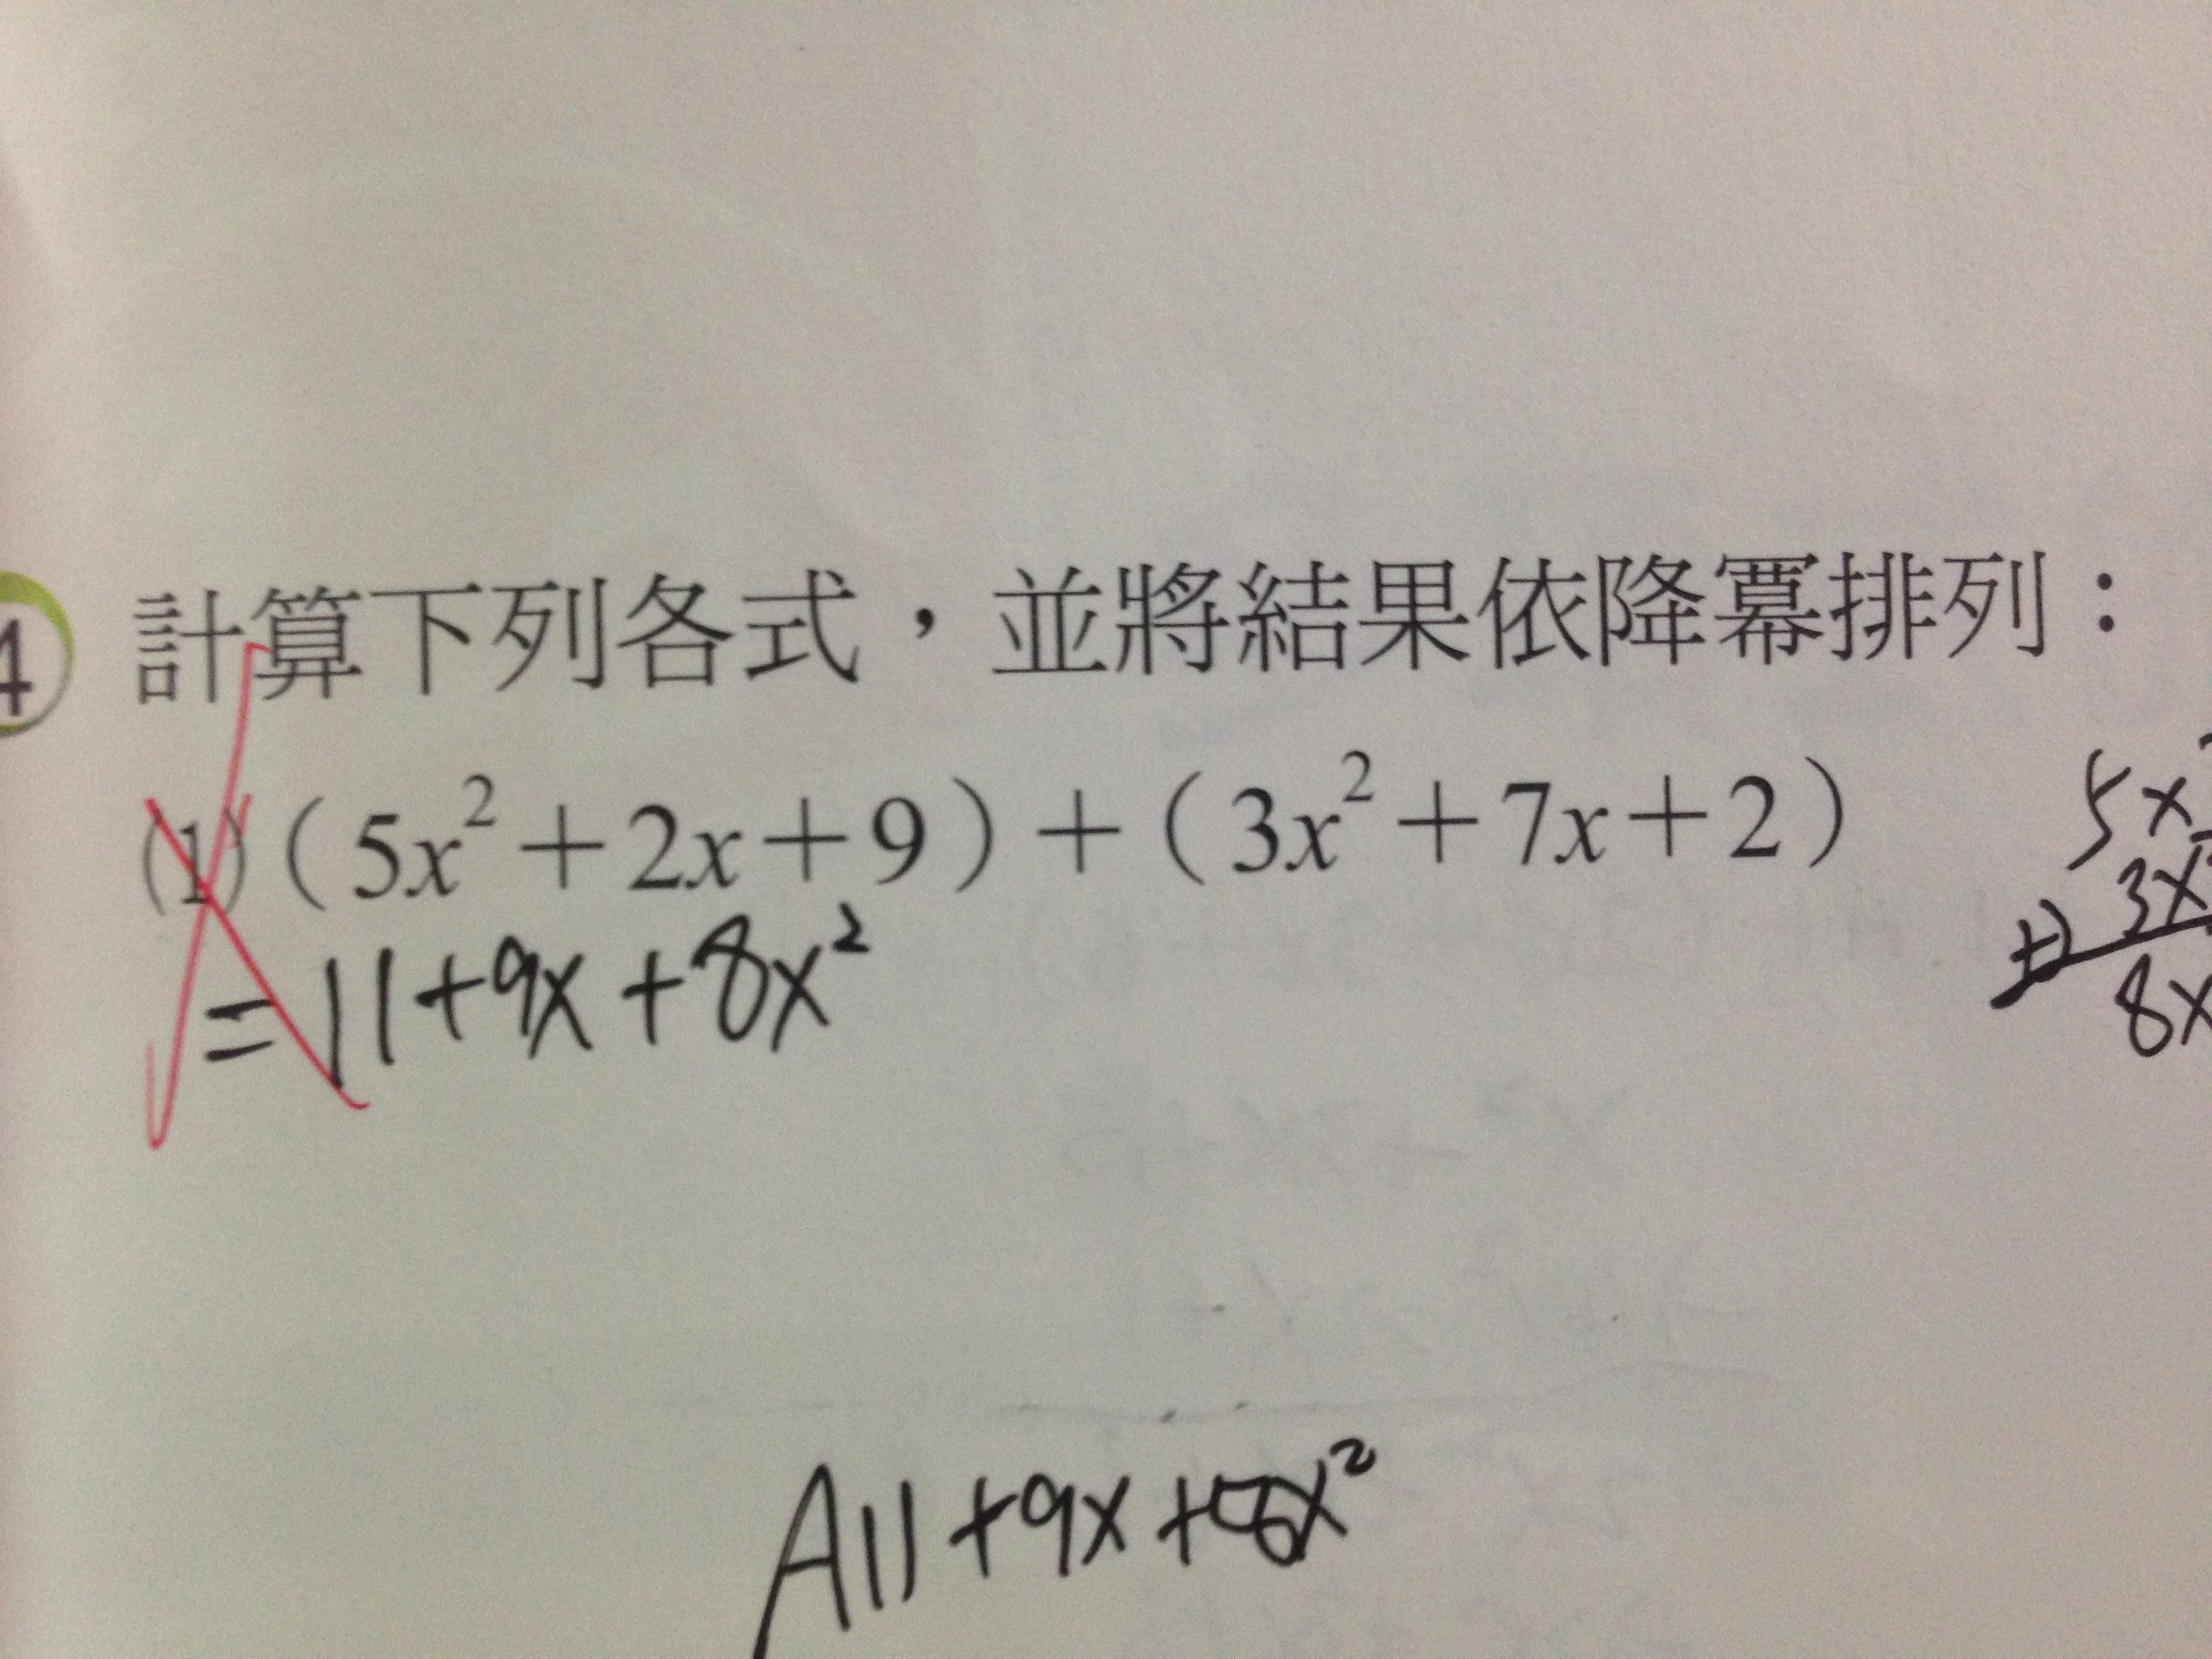 4 計算下列各式，並將結果依降冪排列：
(1)（5x²＋2x＋9）＋（3x²＋7x＋2）
=11+9x+8x²
5x²
+) 3x²
8x
A11+9x+8x²